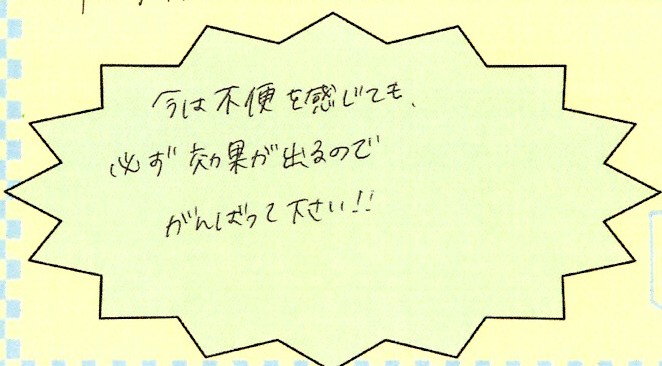 今は不便を感じても、
必ず効果が出るので
がんばって下さい!!